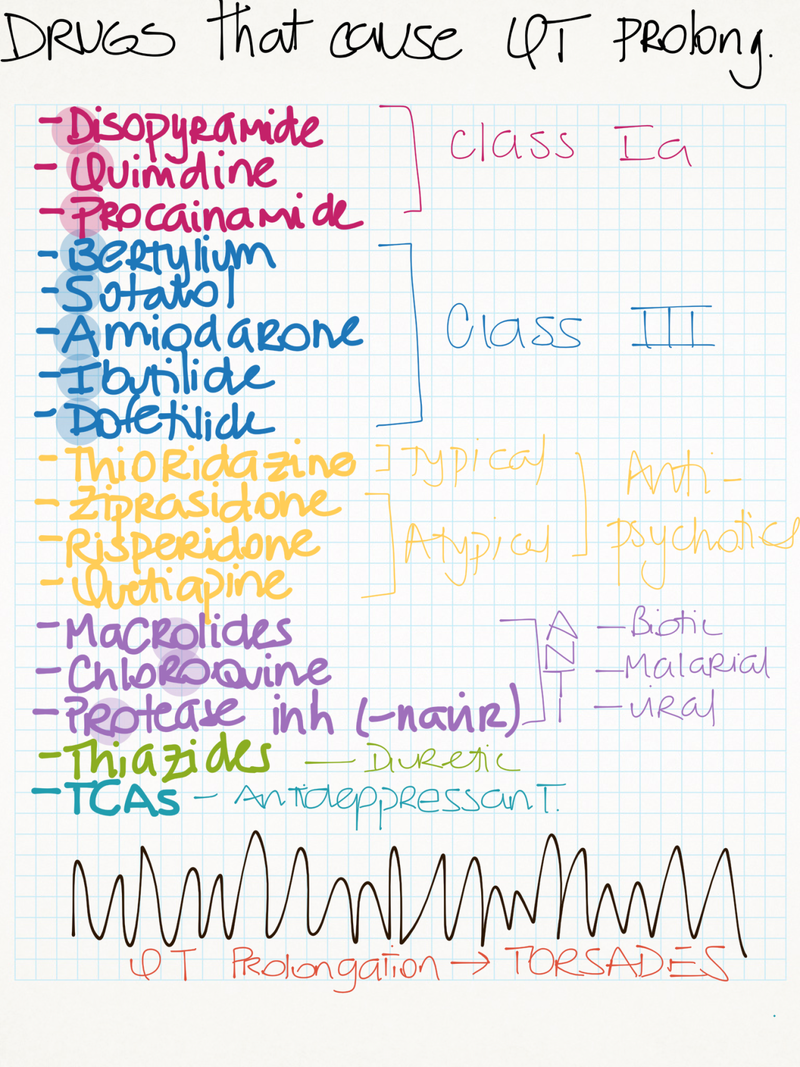 DRUGS that cause QT PROlong.
- Disopyramide
- Quimdine
- Procainamide
Class Ia
- Bertylium
- Sotalol
- Amiodarone
- Ibutilide
- Dofetilide
Class III
- Thioridazine ] Typical
- Ziprasidone
- Risperidone
- Quetiapine
Atypical
Anti-
psychotics
- Macrolides
- Chloroquine
- Protease inh (-navir)
ANTI
- Biotic
- Malarial
- viral
- Thiazides — Diuretic
- TCAs - Antideppressant.
QT Prolongation → TORSADES